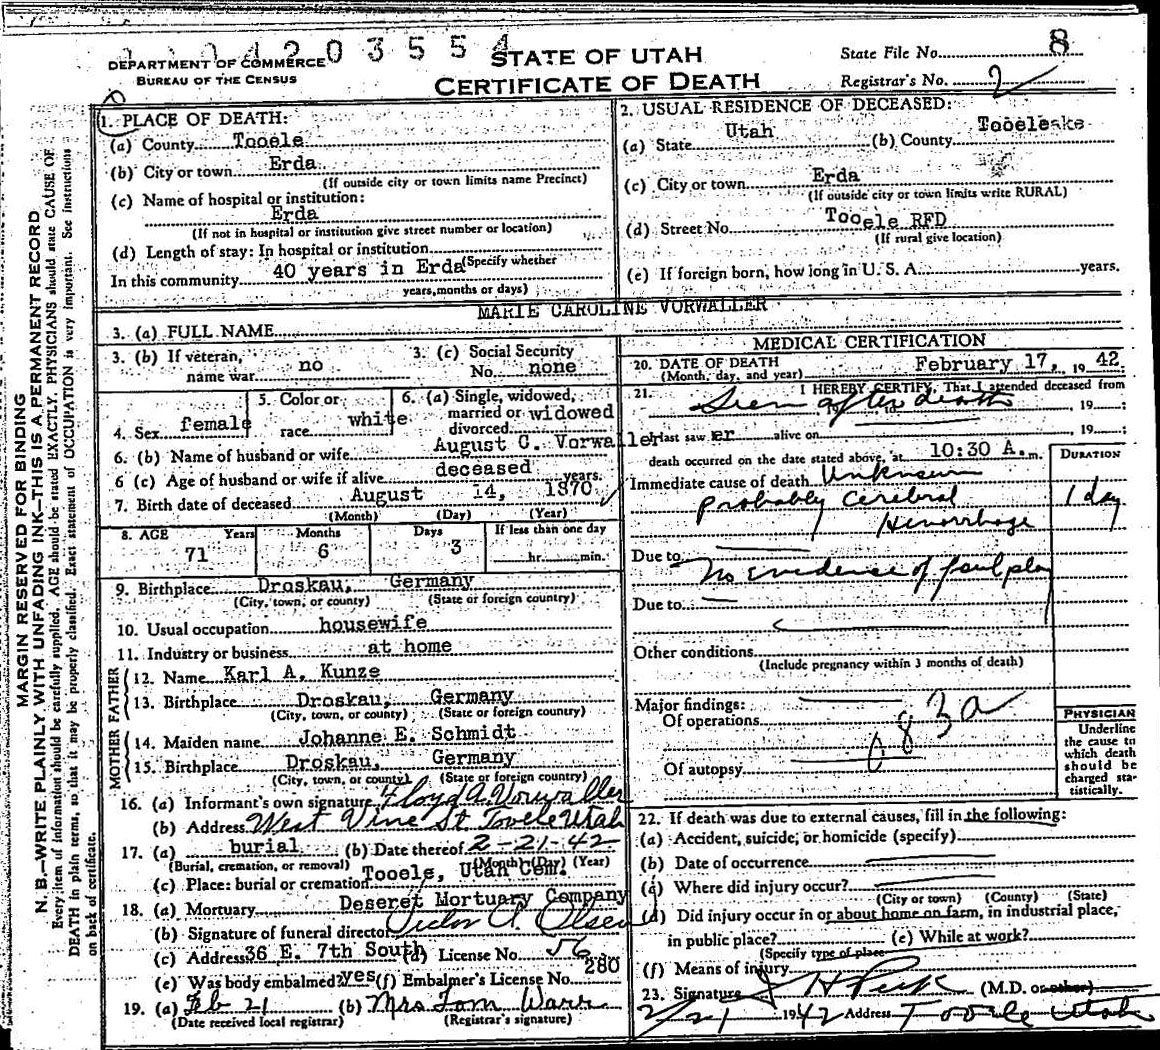 1 1 0 4 2 0 3 5 5 4
DEPARTMENT OF COMMERCE
BUREAU OF THE CENSUS
STATE OF UTAH
CERTIFICATE OF DEATH
State File No. 8
Registrar's No. 2
MARGIN RESERVED FOR BINDING
N. B.—WRITE PLAINLY WITH UNFADING INK—THIS IS A PERMANENT RECORD
Every item of information should be carefully supplied. AGE should be stated EXACTLY. PHYSICIANS should state CAUSE OF
DEATH in plain terms, so that it may be properly classified. Exact statement of OCCUPATION is very important. See instructions
on back of certificate.
1. PLACE OF DEATH:
(a) County Tooele
(b) City or town Erda
(If outside city or town limits name Precinct)
(c) Name of hospital or institution:
Erda
(If not in hospital or institution give street number or location)
(d) Length of stay: In hospital or institution
(Specify whether
In this community 40 years in Erda
years, months or days)
2. USUAL RESIDENCE OF DECEASED:
(a) State Utah (b) County Tooele
(c) City or town Erda
(If outside city or town limits write RURAL)
(d) Street No. Tooele RFD
(If rural give location)
(e) If foreign born, how long in U. S. A. years.
3. (a) FULL NAME MARIE CAROLINE VORWALLER
3. (b) If veteran, name war no
3. (c) Social Security No. none
4. Sex female
5. Color or race white
6. (a) Single, widowed, married or divorced widowed
6. (b) Name of husband or wife August C. Vorwaller
6 (c) Age of husband or wife if alive deceased years.
7. Birth date of deceased August 14, 1870
(Month) (Day) (Year)
8. AGE Years Months Days If less than one day
71 6 3 hr. min.
9. Birthplace Droskau, Germany
(City, town, or county) (State or foreign country)
10. Usual occupation housewife
11. Industry or business at home
FATHER
12. Name Karl A. Kunze
13. Birthplace Droskau, Germany
(City, town, or county) (State or foreign country)
MOTHER
14. Maiden name Johanne E. Schmidt
15. Birthplace Droskau, Germany
(City, town, or county) (State or foreign country)
16. (a) Informant's own signature Floyd A. Vorwaller
(b) Address West Vine St Tooele Utah
17. (a) burial (b) Date thereof 2-21-42
(Burial, cremation, or removal) (Month) (Day) (Year)
(c) Place: burial or cremation Tooele, Utah Cem.
18. (a) Mortuary Deseret Mortuary Company
(b) Signature of funeral director Victor A. Olsen
(c) Address 36 E. 7th South (d) License No. 56
(e) Was body embalmed? yes (f) Embalmer's License No. 280
19. (a) Feb 21 (b) Mrs Tom Warr
(Date received local registrar) (Registrar's signature)
MEDICAL CERTIFICATION
20. DATE OF DEATH February 17, 1942
(Month, day, and year)
21. I HEREBY CERTIFY, That I attended deceased from
Seen after death 19 ;
19 to , 19 ;
I last saw her alive on , 19 ;
death occurred on the date stated above, at 10:30 A. m.
DURATION
Immediate cause of death Unknown
probably Cerebral 1 day
Hemorrhage
Due to
No evidence of foul play
Due to
Other conditions
(Include pregnancy within 3 months of death)
Major findings:
Of operations
083a
Of autopsy
PHYSICIAN
Underline
the cause to
which death
should be
charged sta-
tistically.
22. If death was due to external causes, fill in the following:
(a) Accident, suicide, or homicide (specify)
(b) Date of occurrence
(c) Where did injury occur?
(City or town) (County) (State)
(d) Did injury occur in or about home on farm, in industrial place,
in public place? (e) While at work?
(Specify type of place)
(f) Means of injury
23. Signature J H Peck (M.D. or other)
2/21 1942 Address Tooele Utah